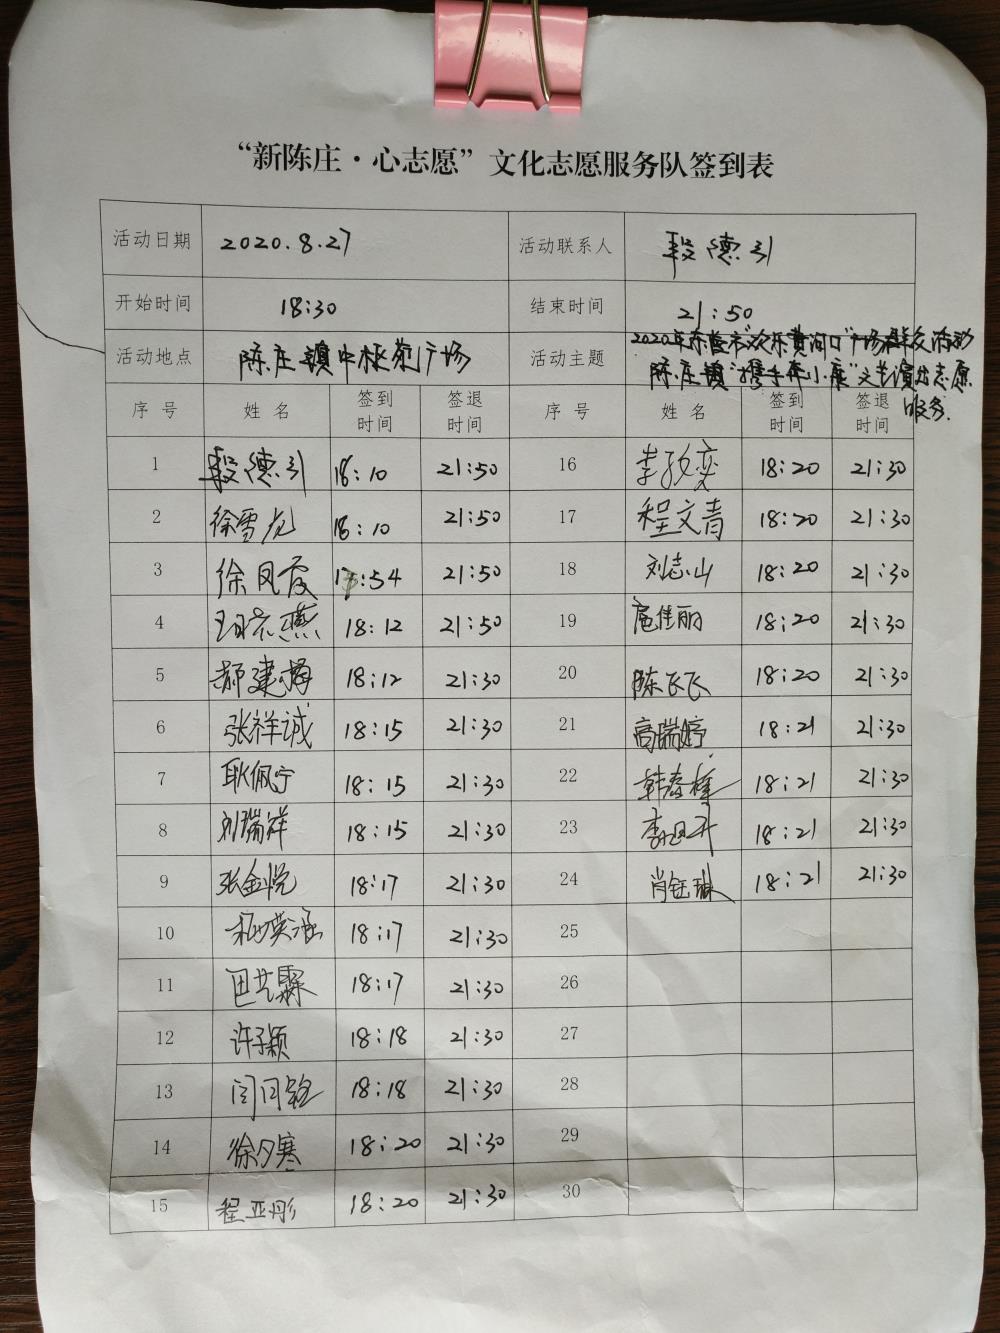 “新陈庄·心志愿”文化志愿服务队签到表
活动日期 2020.8.27 活动联系人 段德引
开始时间 18:30 结束时间 21:50
活动地点 陈庄镇中枢苑广场 活动主题 2020年东营市“欢乐黄河口”广场群众活动
陈庄镇“携手奔小康”文艺演出志愿
服务.
序号 姓名 签到时间 签退时间 序号 姓名 签到时间 签退时间
1 段德引 18:10 21:50 16 李孜变 18:20 21:30
2 徐雪花 18:10 21:50 17 程文青 18:20 21:30
3 徐凤霞 21:50 18 刘志山 18:20 21:30
4 18:12 21:50 19 扈佳丽 18:20 21:30
5 郝建梅 18:12 21:30 20 陈飞飞 18:20 21:30
6 张祥诚 18:15 21:30 21 高瑞婷 18:21 21:30
7 耿佩宁 18:15 21:30 22 18:21 21:30
8 刘瑞祥 18:15 21:30 23 18:21 21:30
9 张金悦 18:17 21:30 24 肖钰琳 18:21 21:30
10 18:17 21:30 25
11 18:17 21:30 26
12 许子颖 18:18 21:30 27
13 18:18 21:30 28
14 徐夕寒 18:20 21:30 29
15 程亚彤 18:20 21:30 30